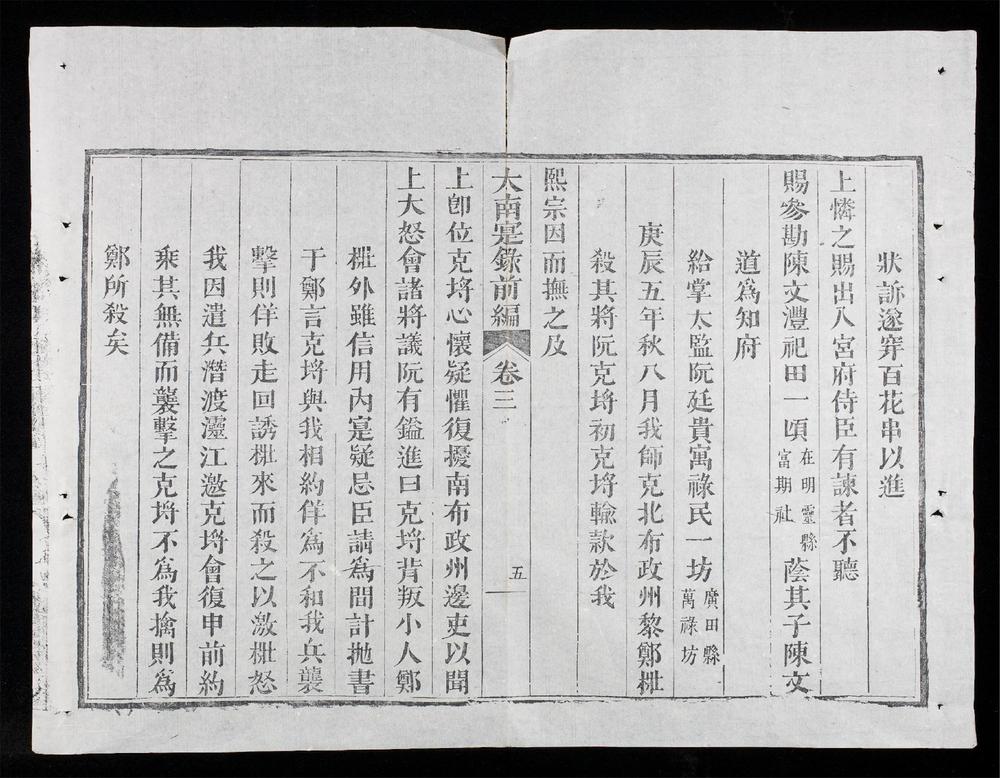 狀訴遂穿百花串以進
上憐之賜出入宮府侍臣有諫者不聽
賜參勘陳文灃祀田一頃在明靈縣富期社蔭其子陳文
道爲知府
給掌太監阮廷貴寓祿民一坊廣田縣萬祿坊
庚辰五年秋八月我師克北布政州黎鄭𣖙
殺其將阮克㙐初克㙐輸款於我
熙宗因而撫之及
大南寔錄前編 卷三 五
上卽位克㙐心懷疑懼復擾南布政州邊吏以聞
上大怒會諸將議阮有鎰進曰克㙐背叛小人鄭
𣖙外雖信用內寔疑忌臣請爲間計抛書
于鄭言克㙐與我相約佯爲不和我兵襲
擊則佯敗走回誘𣖙來而殺之以激𣖙怒
我因遣兵潛渡𤅷江邀克㙐會復申前約
乘其無備而襲擊之克㙐不爲我擒則爲
鄭所殺矣